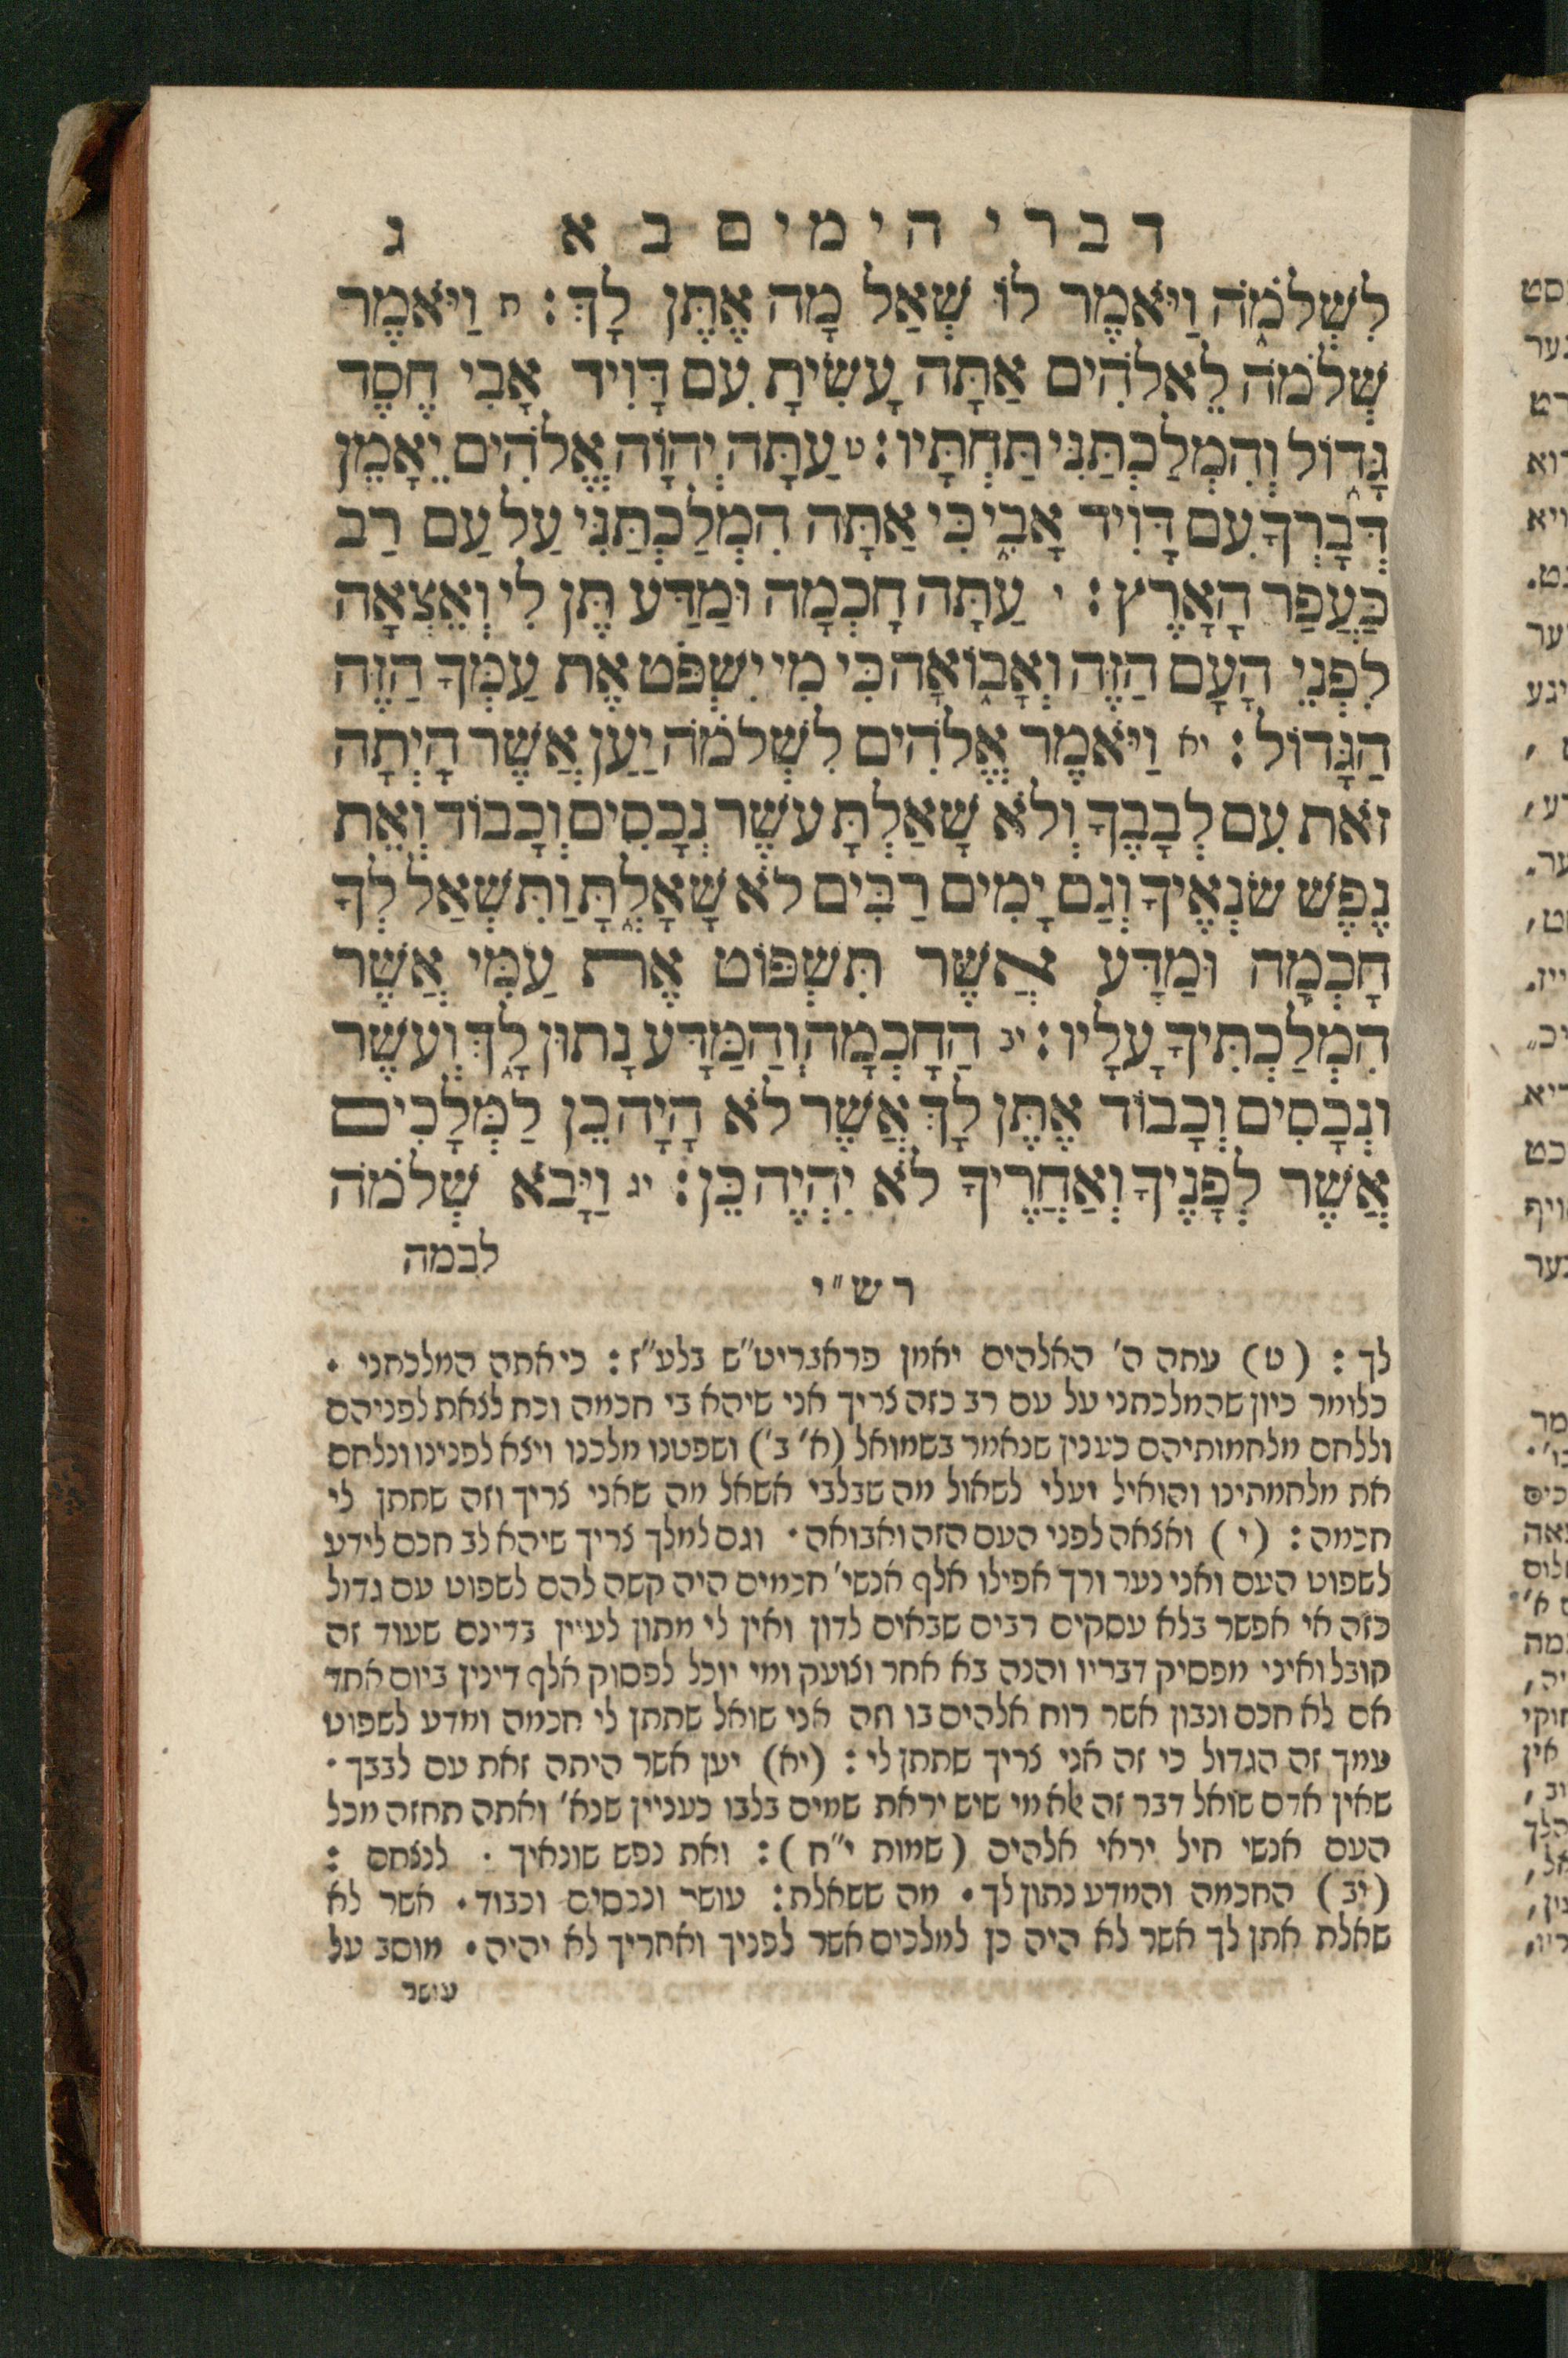 דברי הימים ב א ג
לִשְׁלֹמֹה וַיֹּאמֶר לוֹ שְׁאַל מָה אֶתֶּן לָךְ: ח וַיֹּאמֶר
שְׁלֹמֹה לֵאלֹהִים אַתָּה עָשִׂיתָ עִם דָּוִיד אָבִי חֶסֶד
גָּדוֹל וְהִמְלַכְתַּנִי תַּחְתָּיו: ט עַתָּה יְהוָֹה אֱלֹהִים יֵאָמֵן
דְּבָרְךָ עִם דָּוִיד אָבִי כִּי אַתָּה הִמְלַכְתַּנִי עַל עַם רַב
כַּעֲפַר הָאָרֶץ: י עַתָּה חָכְמָה וּמַדַּע תֶּן לִי וְאֵצְאָה
לִפְנֵי הָעָם הַזֶּה וְאָבוֹאָה כִּי מִי יִשְׁפֹּט אֶת עַמְּךָ הַזֶּה
הַגָּדוֹל: יא וַיֹּאמֶר אֱלֹהִים לִשְׁלֹמֹה יַעַן אֲשֶׁר הָיְתָה
זֹאת עִם לְבָבֶךָ וְלֹא שָׁאַלְתָּ עֹשֶׁר נְכָסִים וְכָבוֹד וְאֵת
נֶפֶשׁ שֹׂנְאֶיךָ וְגַם יָמִים רַבִּים לֹא שָׁאָלְתָּ וַתִּשְׁאַל לְךָ
חָכְמָה וּמַדָּע אֲשֶׁר תִּשְׁפּוֹט אֶת עַמִּי אֲשֶׁר
הִמְלַכְתִּיךָ עָלָיו: יב הַחָכְמָה וְהַמַּדָּע נָתוּן לָךְ וְעֹשֶׁר
וּנְכָסִים וְכָבוֹד אֶתֶּן לָךְ אֲשֶׁר לֹא הָיָה כֵן לַמְּלָכִים
אֲשֶׁר לְפָנֶיךָ וְאַחֲרֶיךָ לֹא יִהְיֶה כֵּן: יג וַיָּבֹא שְׁלֹמֹה
לבמה
רש״י
לך: (ט) עתה ה׳ האלהים יאמן פראבריט״ש בלע״ז: כי אתה המלכתני •
כלומר כיון שהמלכתני על עם רב כזה צריך אני שיהא בי חכמה וכח לצאת לפניהם
וללחם מלחמותיהם כענין שנאמר בשמואל (א׳ ב׳) ושפטנו מלכנו ויצא לפנינו ונלחם
את מלחמתינו והואיל ועלי לשאול מה שבלבי אשאל מה שאני צריך וזה שתתן לי
חכמה: (י) ואצאה לפני העם הזה ואבואה• וגם למלך צריך שיהא לב חכם לידע
לשפוט העם ואני נער ורך אפילו אלף אנשי׳ חכמים היה קשה להם לשפוט עם גדול
כזה אי אפשר בלא עסקים רבים שבאים לדון ואין לי מתון לעיין בדינם שעוד זה
קובל ואיני מפסיק דבריו והנה בא אחר וצועק ומי יוכל לפסוק אלף דינין ביום אחד
אם לא חכם ונבון אשר רוח אלהים בו וזה אני שואל שתתן לי חכמה ומדע לשפוט
עמך זה הגדול כי זה אני צריך שתתן לי: (יא) יען אשר היתה זאת עם לבבך•
שאין אדם שואל דבר זה אלא מי שיש יראת שמים בלבו כעניין שנא׳ ואתה תחזה מכל
העם אנשי חיל יראי אלהים (שמות י״ח): ואת נפש שונאיך • לנצחם:
(יב) החכמה והמדע נתון לך• מה ששאלת: עושר ונכסים וכבוד• אשר לא
שאלת אתן לך אשר לא היה כן למלכים אשר לפניך ואחריך לא יהיה• מוסב על
עושר